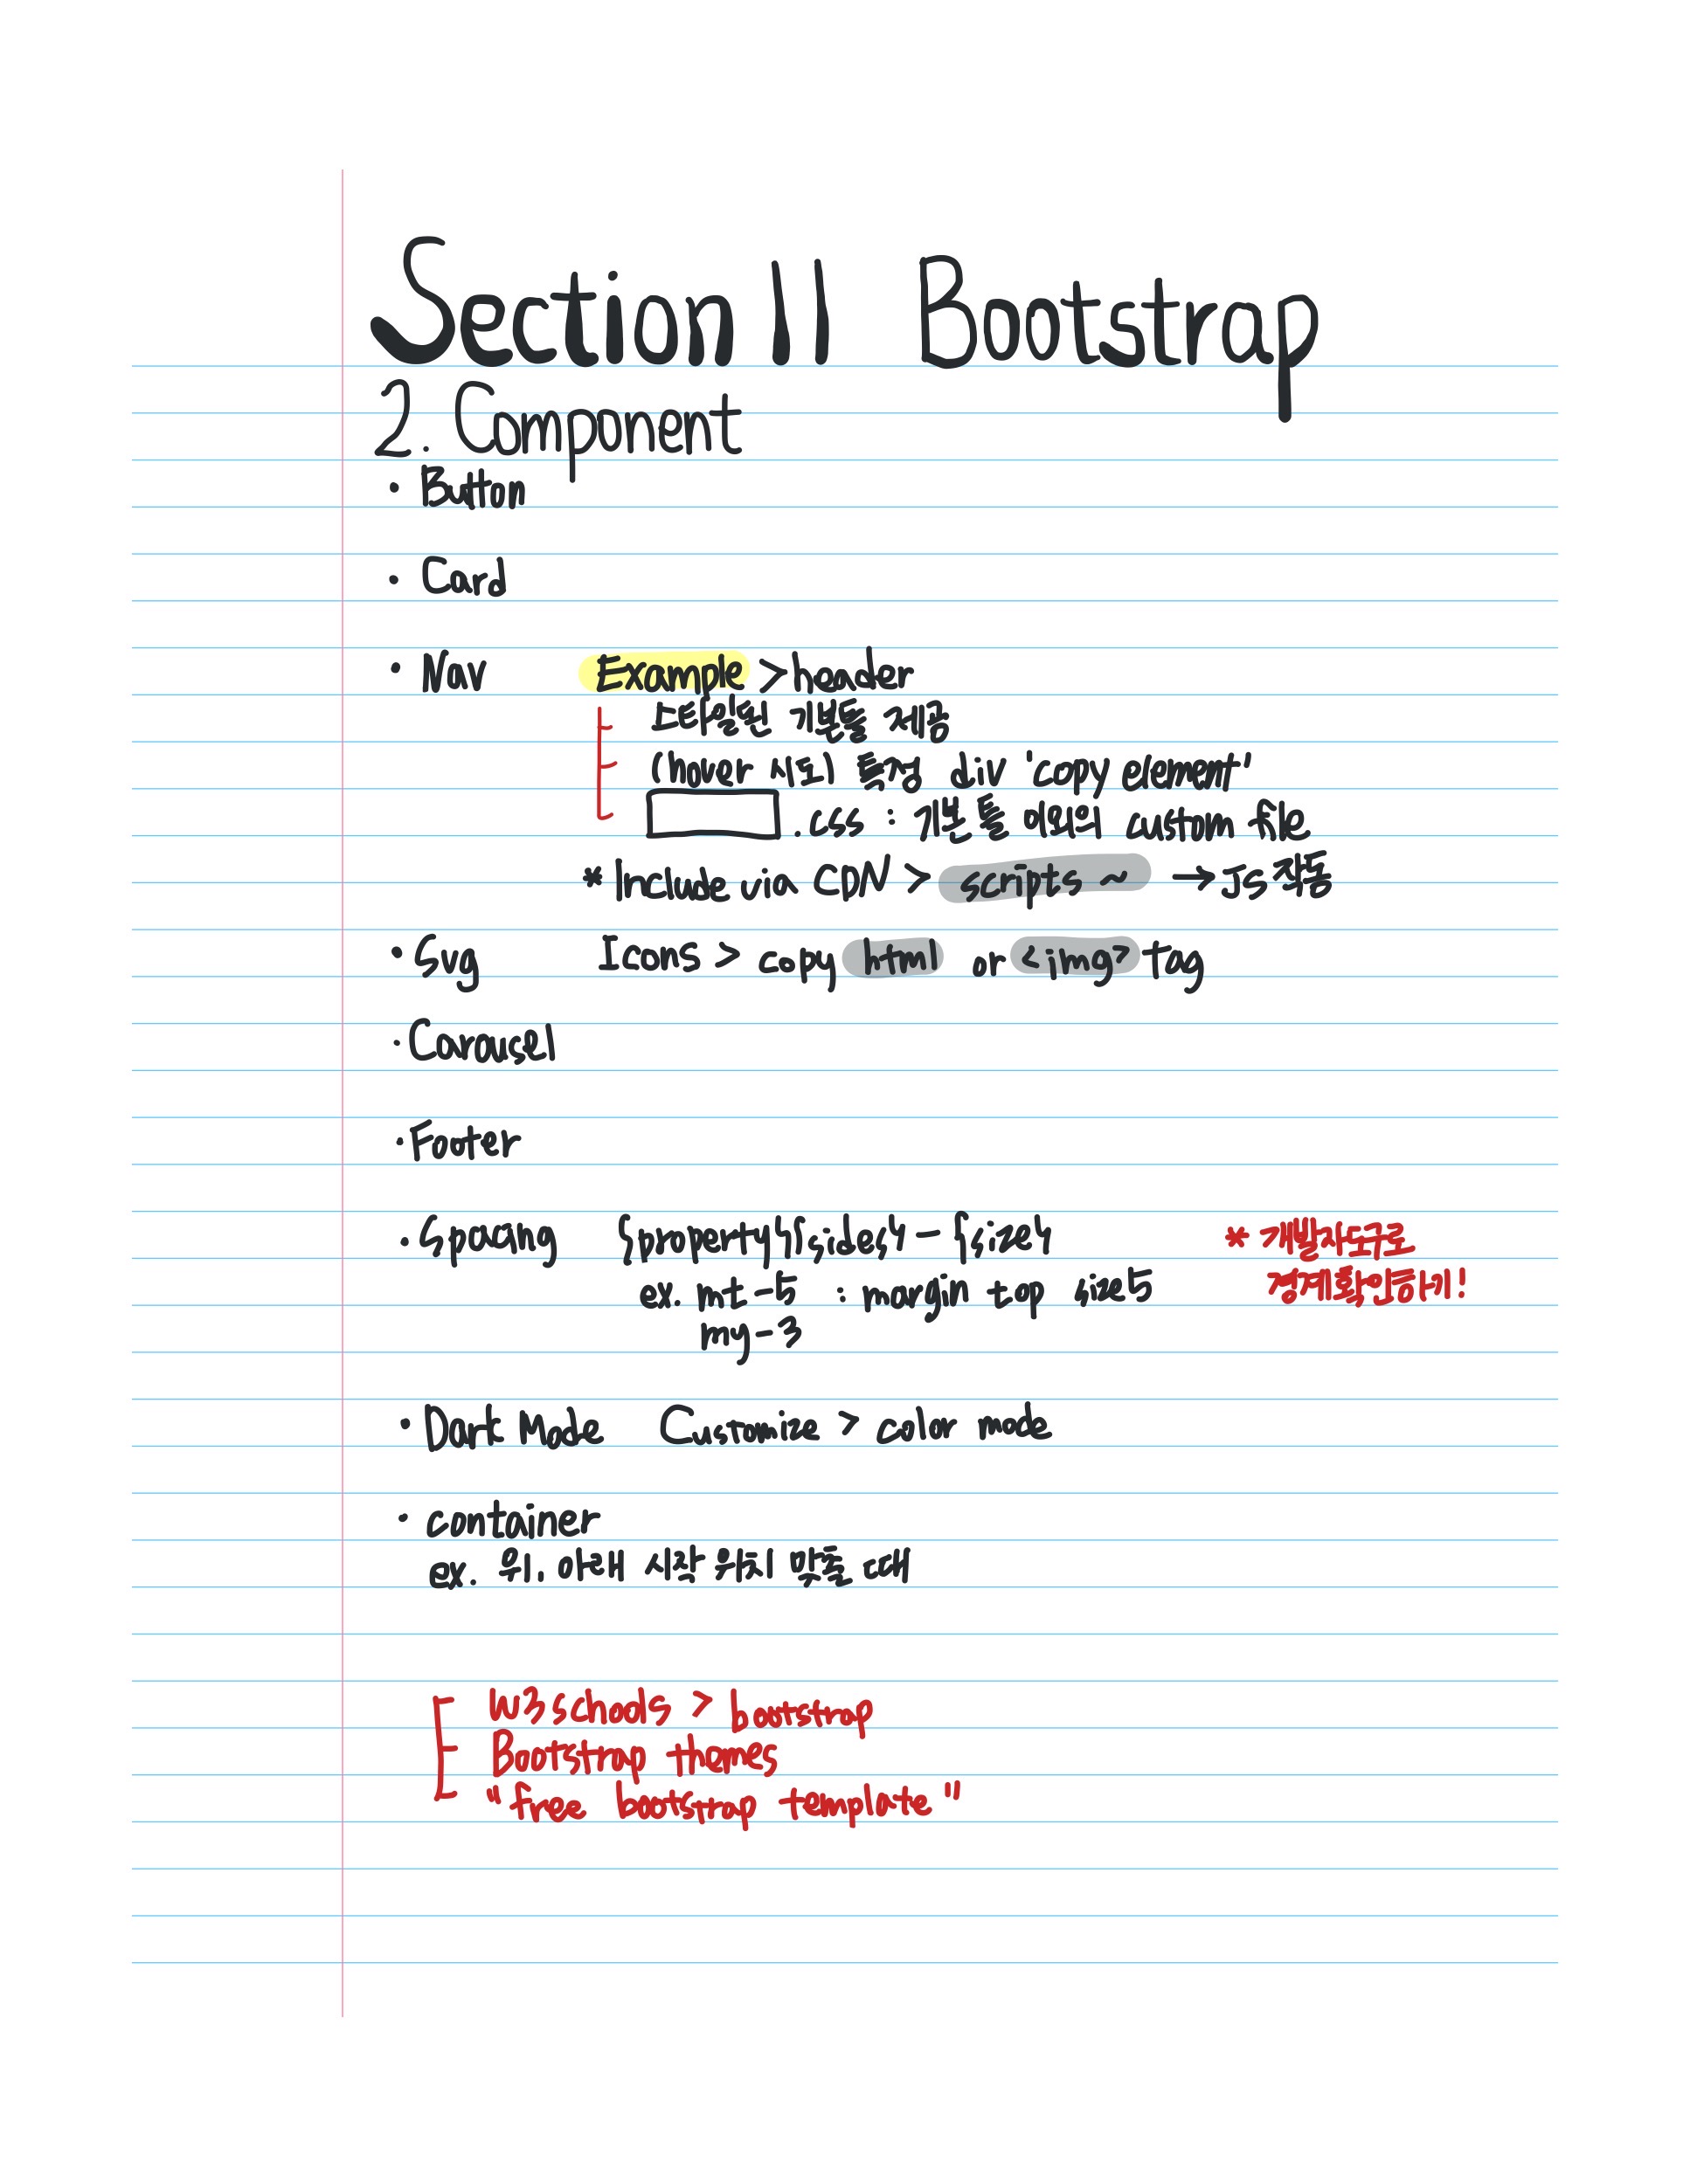 Section 11 Bootstrap
2. Component
· Button
· Card
· Nav Example > header
스타일된 기본틀 제공
(hover 시도) 특정 div 'copy element'
.css : 기본 틀 이외의 custom file
* Include via CDN > scripts ~ → JS 작동
· Svg Icons > copy html or <img> tag
· Carousel
· Footer
· Spacing {property}{sides}-{size} * 개발자도구로
ex. mt-5 : margin top size5 경계확인하기!
my-3
· Dark Mode Customize > color mode
· container
ex. 위, 아래 시작 위치 맞출 때
W3schools > bootstrap
Bootstrap themes
"free bootstrap template"